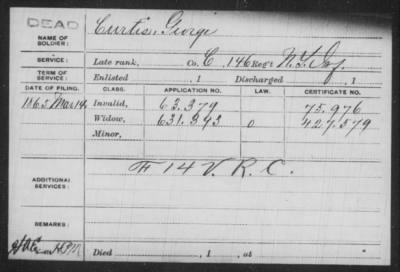 DEAD
NAME OF SOLDIER: Curtis, George
SERVICE: Late rank, Co. C, 146 Reg't N.Y. Inf.
TERM OF SERVICE: Enlisted , 1 Discharged , 1
DATE OF FILING. CLASS. APPLICATION NO. LAW. CERTIFICATE NO.
1865 Mar 14 Invalid, 63.379 75.976
Widow, 631.393 0 427.579
Minor,
F 14 V. R. C.
ADDITIONAL SERVICES:
REMARKS:
Died , 1 , at